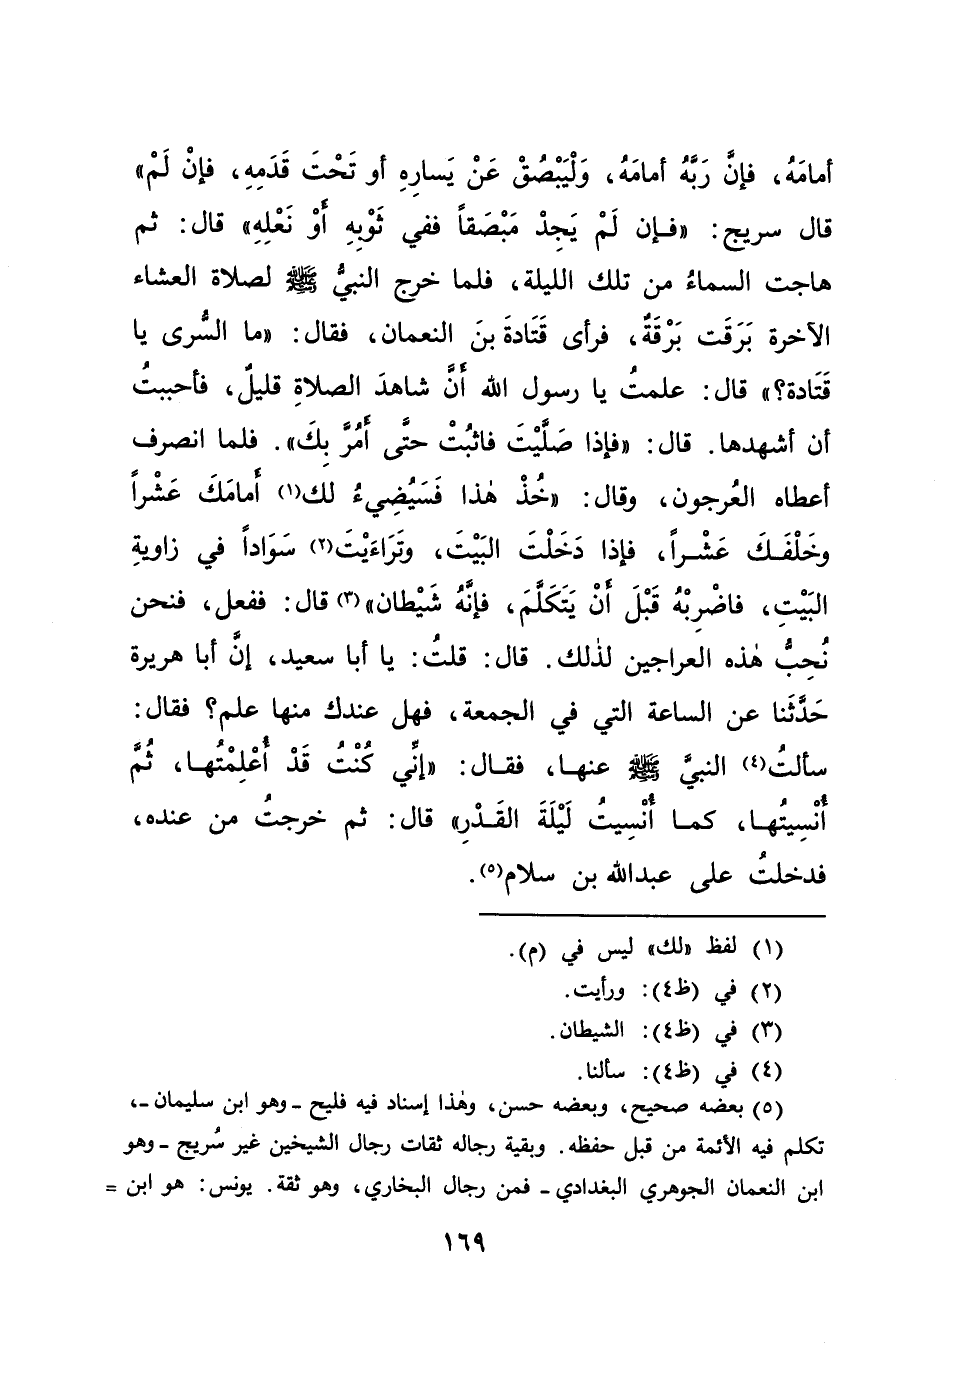 أمامَهُ، فإنَّ رَبَّهُ أمامَهُ، وَلْيَبْصُقْ عَنْ يَسارِهِ أو تَحْتَ قَدَمِهِ، فإنْ لَمْ»
قال سريج: «فإن لَمْ يَجِدْ مَبْصَقاً ففي ثَوْبِهِ أَوْ نَعْلِهِ» قال: ثم
هاجت السماءُ من تلك الليلة، فلما خرج النبيُّ ﷺ لصلاة العشاء
الآخرة بَرَقَت بَرْقَةٌ، فرأى قَتَادةَ بنَ النعمان، فقال: «ما السُّرى يا
قَتَادة؟» قال: علمتُ يا رسول الله أَنَّ شاهدَ الصلاةِ قليلٌ، فأحببتُ
أن أشهدها. قال: «فإذا صَلَّيْتَ فاثبُتْ حتَّى أَمُرَّ بِكَ». فلما انصرف
أعطاه العُرجون، وقال: «خُذْ هٰذا فَسَيُضِيءُ لك(١) أَمامَكَ عَشْراً
وخَلْفَكَ عَشْراً، فإذا دَخَلْتَ البَيْتَ، وتَرَاءَيْتَ(٢) سَوَاداً في زاويةِ
البَيْتِ، فاضْرِبْهُ قَبْلَ أَنْ يَتَكَلَّمَ، فإنَّهُ شَيْطان»(٣) قال: ففعل، فنحن
نُحِبُّ هٰذه العراجين لذٰلك. قال: قلتُ: يا أبا سعيد، إنَّ أبا هريرة
حَدَّثَنا عن الساعة التي في الجمعة، فهل عندك منها علم؟ فقال:
سألتُ(٤) النبيَّ ﷺ عنها، فقال: «إنِّي كُنْتُ قَدْ أُعْلِمْتُها، ثُمَّ
أُنْسِيتُها، كما أُنْسِيتُ لَيْلَةَ القَدْرِ» قال: ثم خرجتُ من عنده،
فدخلتُ على عبدالله بن سلام(٥).
(١) لفظ «لك» ليس في (م).
(٢) في (ظ٤): ورأيت.
(٣) في (ظ٤): الشيطان.
(٤) في (ظ٤): سألنا.
(٥) بعضه صحيح، وبعضه حسن، وهٰذا إسناد فيه فليح ـ وهو ابن سليمان ـ،
تكلم فيه الأئمة من قبل حفظه. وبقية رجاله ثقات رجال الشيخين غير سُريج ـ وهو
ابن النعمان الجوهري البغدادي ـ فمن رجال البخاري، وهو ثقة. يونس: هو ابن =
١٦٩